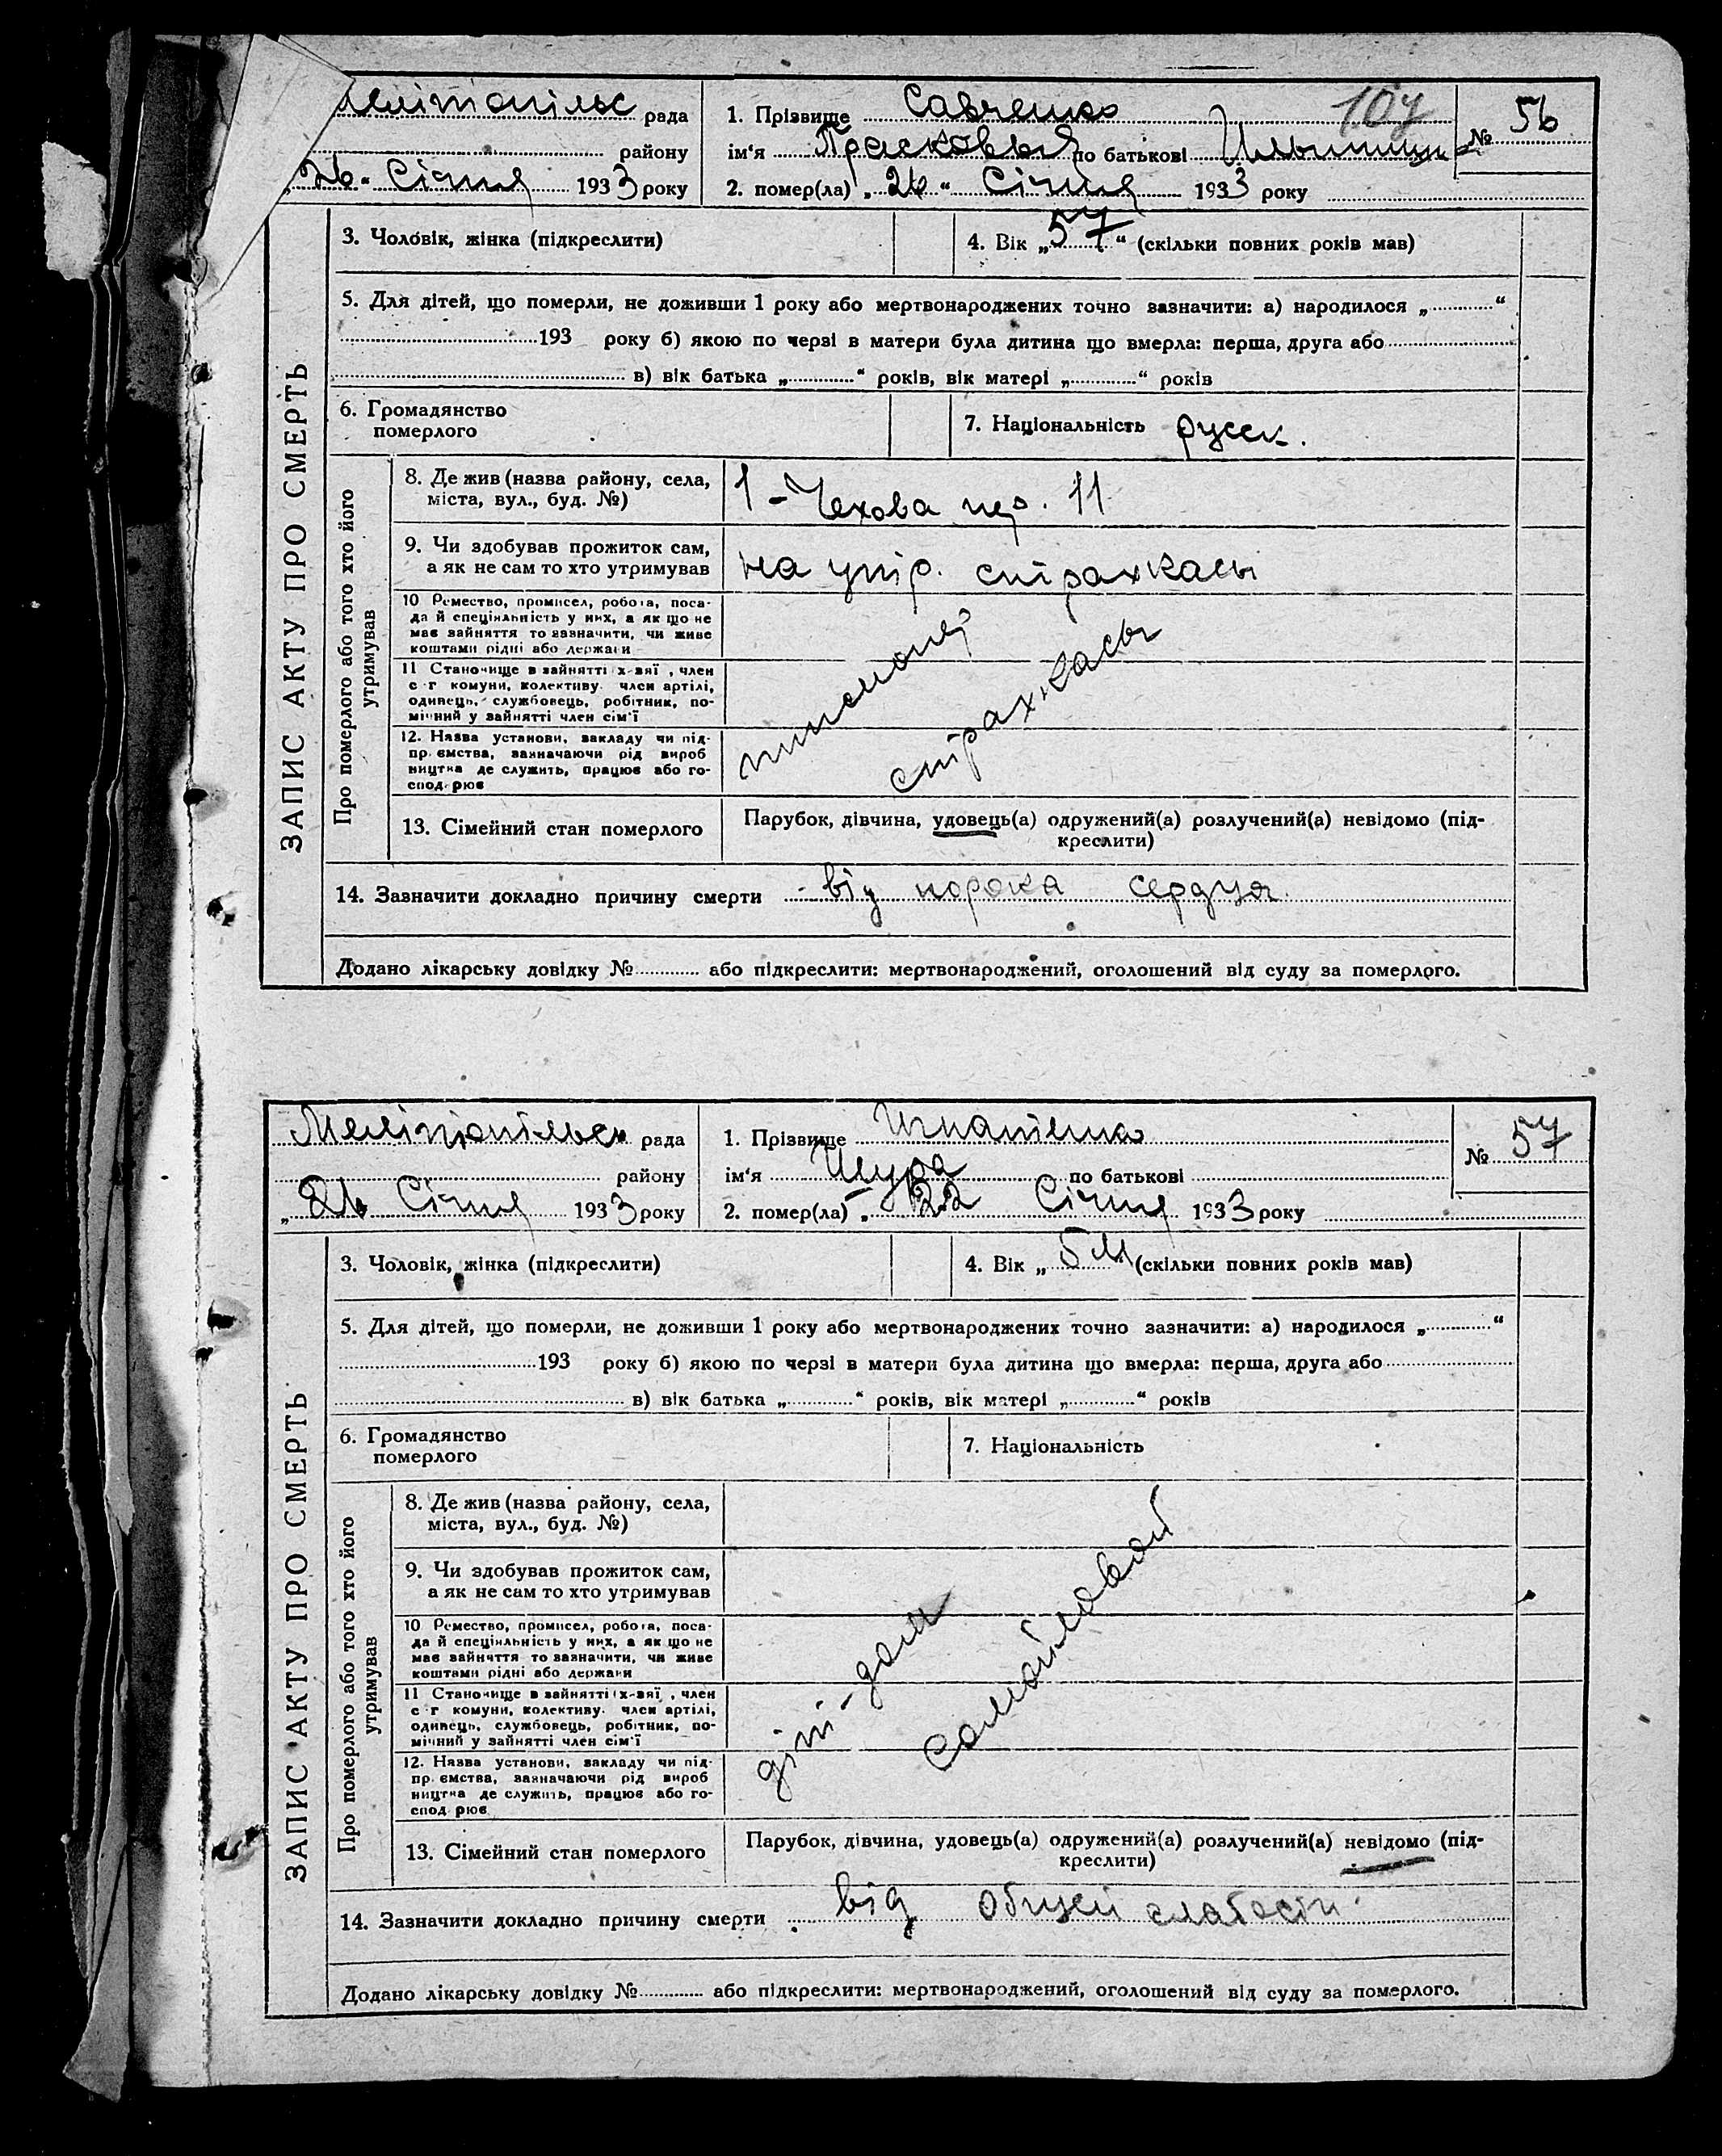 Мелітопільс рада
району
„26“ Січня 1933 року
1. Прізвище Савченко
107
ім‘я Прасковья по батькові
№ 56
2. помер(ла) „26“ Січня 1933 року
ЗАПИС АКТУ ПРО СМЕРТЬ
3. Чоловік, жінка (підкреслити)
4. Вік „57“ (скільки повних років мав)
5. Для дітей, що померли, не доживши 1 року або мертвонароджених точно зазначити: а) народилося „ “
193 року б) якою по черзі в матери була дитина що вмерла: перша, друга або
в) вік батька „ “ років, вік матері „ “ років
6. Громадянство
померлого
7. Національність русск.
Про померлого або того хто його
утримував
8. Де жив (назва району, села,
міста, вул., буд. №)
1-Чехова пер. 11
9. Чи здобував прожиток сам,
а як не сам то хто утримував
на утр. страхкасы
10 Ремество, промисел, робота, поса-
да й спеціяльність у них, а як що не
має зайняття то зазначити, чи живе
коштами рідні або держави
11 Становище в зайнятті (х-вяї , член
с-г комуни, колективу. член артілі,
одинець, службовець, робітник, по-
мічний у зайнятті член сім‘ї
12. Назва установи, закладу чи під-
пр. ємства, зазначаючи рід вироб
ництва де служить, працює або го-
спод. рює
страх.касы
13. Сімейний стан померлого
Парубок, дівчина, удовець(а) одружений(а) розлучений(а) невідомо (під-
креслити)
14. Зазначити докладно причину смерти від порока сердця
Додано лікарську довідку № або підкреслити: мертвонароджений, оголошений від суду за померлого.
Мелітопільськ рада
району
„26 Січня 1933 року
1. Прізвище Игнатенко
ім‘я Шура по батькові
№ 57
2. помер(ла) „ 22 Січня 1933 року
ЗАПИС АКТУ ПРО СМЕРТЬ
3. Чоловік, жінка (підкреслити)
4. Вік „ 5 м“ (скільки повних років мав)
5. Для дітей, що померли, не доживши 1 року або мертвонароджених точно зазначити: а) народилося „ “
193 року б) якою по черзі в матери була дитина що вмерла: перша, друга або
в) вік батька „ “ років, вік матері „ “ років
6. Громадянство
померлого
7. Національність
Про померлого або того хто його
утримував
8. Де жив (назва району, села,
міста, вул., буд. №)
9. Чи здобував прожиток сам,
а як не сам то хто утримував
10 Ремество, промисел, робота, поса-
да й спеціяльність у них, а як що не
має зайняття то зазначити, чи живе
коштами рідні або держави
11 Становище в зайнятті (х-вяї , член
с-г комуни, колективу. член артілі,
одинець, службовець, робітник, по-
мічний у зайнятті член сім‘ї
12. Назва установи, закладу чи під-
пр. ємства, зазначаючи рід вироб
ництва де служить, працює або го-
спод. рює
діт-дом
Самойловой
13. Сімейний стан померлого
Парубок, дівчина, удовець(а) одружений(а) розлучений(а) невідомо (під-
креслити)
14. Зазначити докладно причину смерти від общей слабости
Додано лікарську довідку № або підкреслити: мертвонароджений, оголошений від суду за померлого.